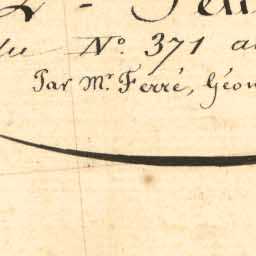 du N.º 371 au
Par M.r Ferré, Géom